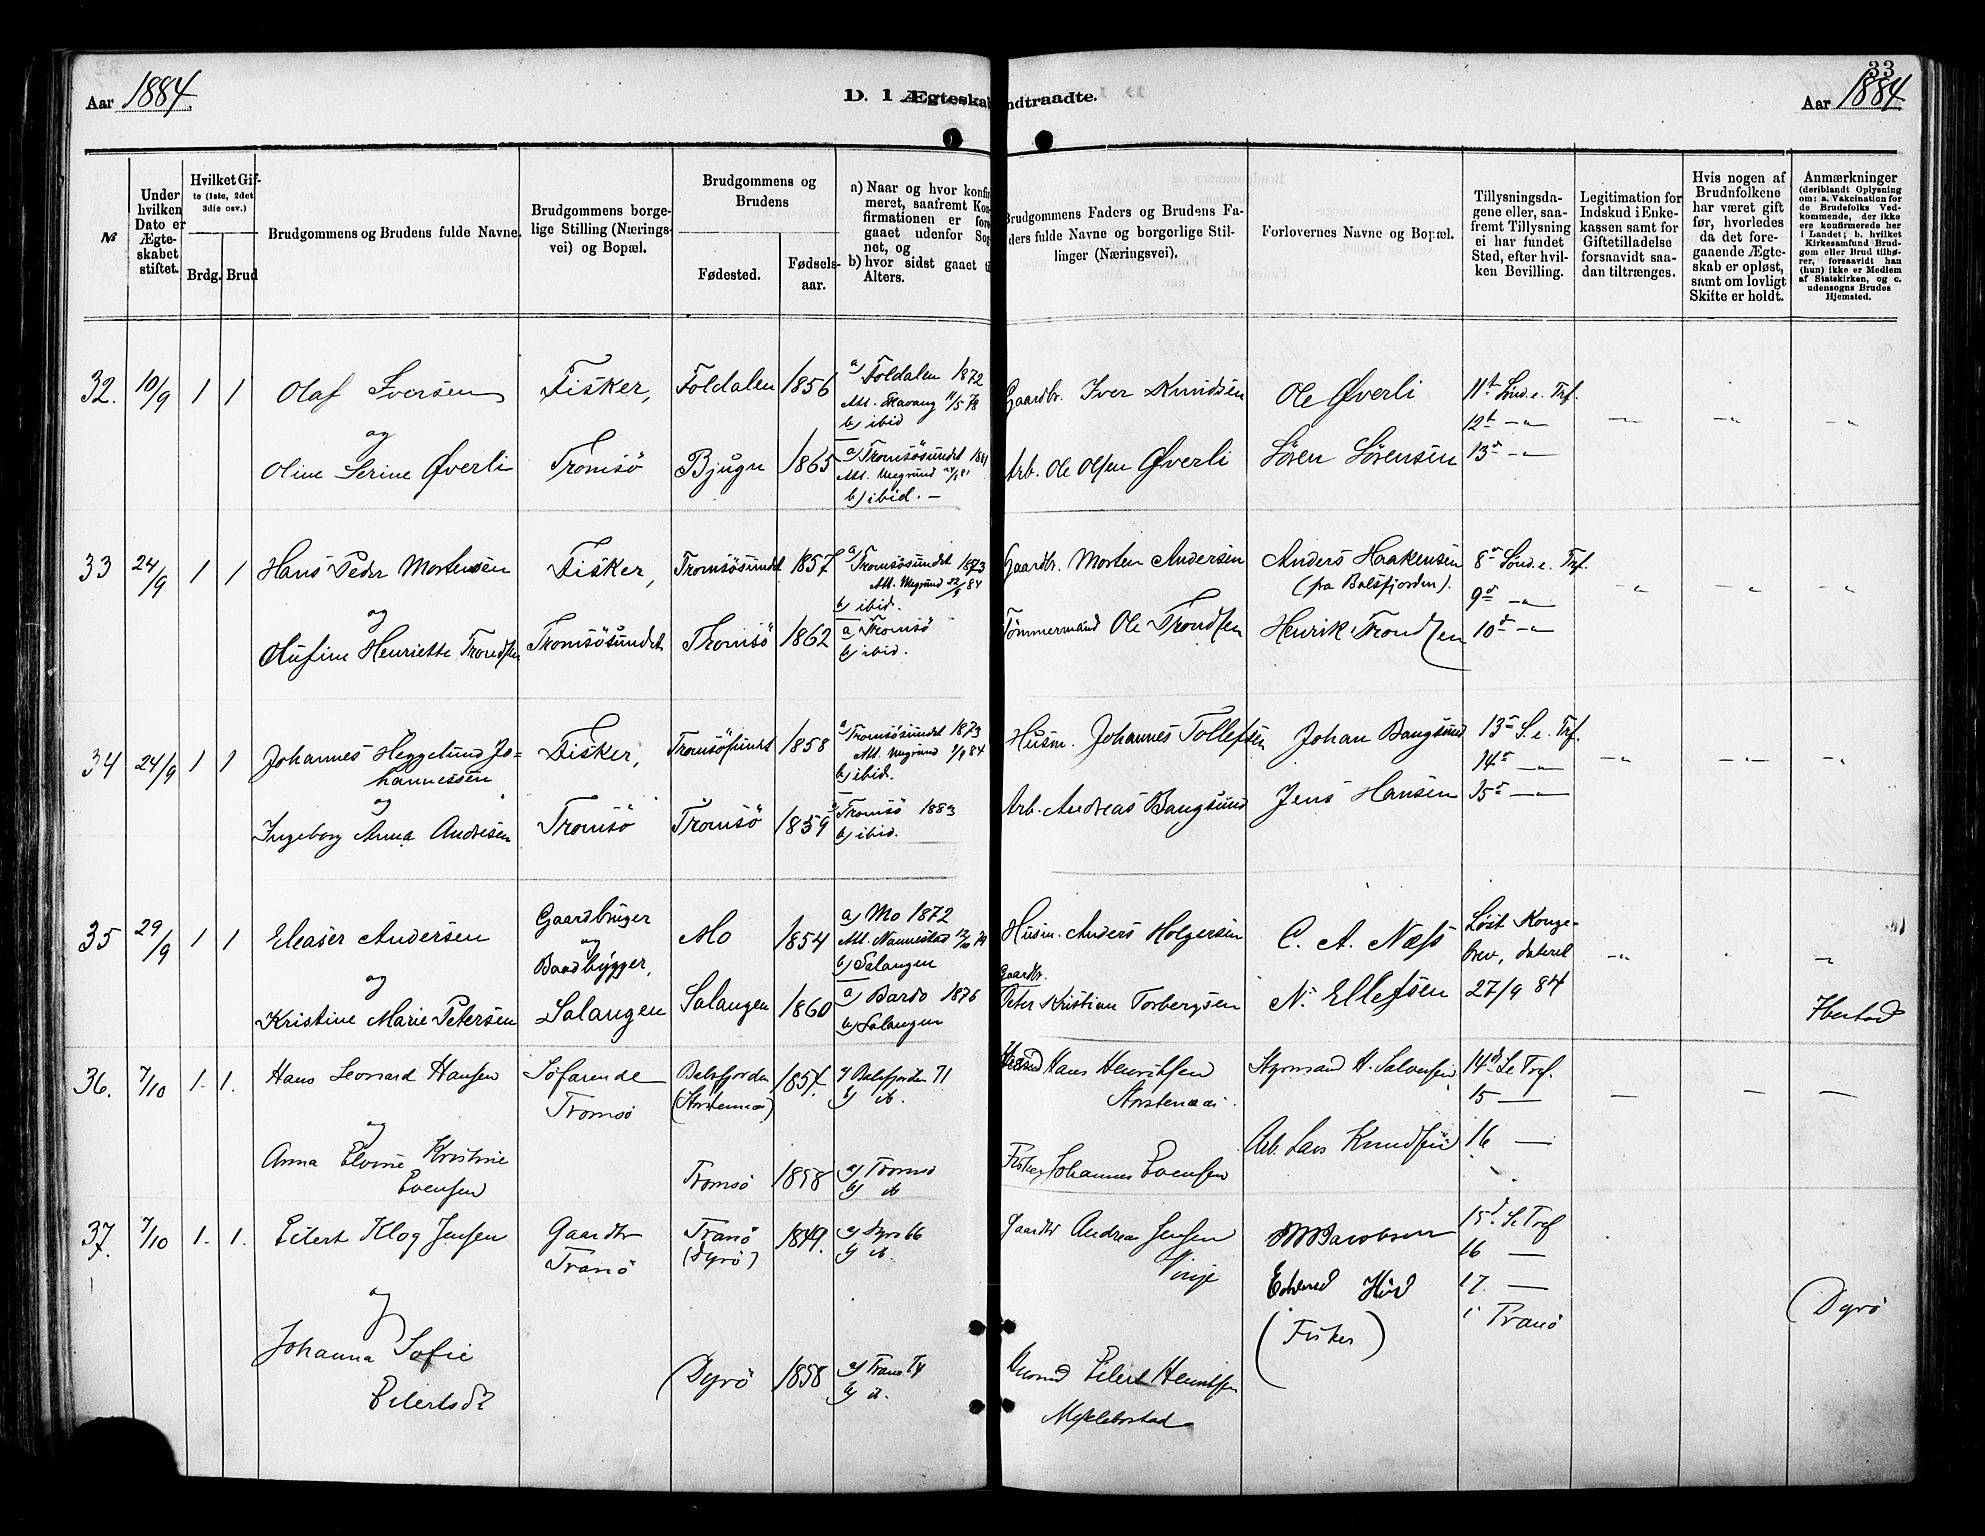 Aar 1884.
D. I Ægteskab
ndtraadte.
33
Aar 1884
№
Under hvilken Dato er Ægteskabet stiftet.
Hvilket Gifte (1ste, 2det 3die osv.)
Brdg. Brud
Brudgommens og Brudens fulde Navne.
Brudgommens borgelige Stilling (Næringsvei) og Bopæl.
Brudgommens og Brudens
Fødested.
Fødselsaar.
a) Naar og hvor konfirmeret, saafremt Konfirmationen er foregaaet udenfor Sognet, og
b) hvor sidst gaaet til Alters.
Brudgommens Faders og Brudens Faders fulde Navne og borgerlige Stillinger (Næringsvei).
Forlovernes Navne og Bopæl.
Tillysningsdagene eller, saafremt Tillysning ei har fundet Sted, efter hvilken Bevilling.
Legitimation for Indskud i Enkekassen samt for Giftetilladelse forsaavidt saadan tiltrænges.
Hvis nogen af Brudnfolkene har været gift før, hvorledes da det foregaaende Ægteskab er opløst, samt om lovligt Skifte er holdt.
Anmærkninger (deriblandt Oplysning om: a. Vakcination for de Brudefolks Vedkommende, der ikke ere konfirmerede her i Landet; b. hvilket Kirkesamfund Brudgom eller Brud tilhører, forsaavidt han (hun) ikke er Medlem af Statskirken, og c. udensogns Brudes Hjemsted.
32. 10/9 1 1 Olaf Iversen Fisker, Foldalen 1856 a) Foldalen 1872
b) ibid
Gaardbr. Iver Knudsen Ole Øverli 11te Sønd. e. Trf.
12te -"-
og
Oline Serine Øverli Tromsö Bjugn 1865 a) Tromsösundet 1881
b) ibid. -
Arb. Ole Olsen Øverli Sören Sörensen 13de -"-
33 24/9 1 1 Hans Peder Mortensen Fisker, Tromsösundet 1857 a) Tromsösundet 1873
b) ibid.
Gaardbr. Morten Andersen Anders Haakensen
(fra Balsfjorden).
8de Sønd. e. Trf.
9de -"-
og
Olufine Henriette Trondsen Tromsösundet Tromsö 1862 a) Tromsö
b) ibid.
Tömmermand Ole Trondsen Henrik Trondsen 10de -"-
34 24/9 1 1 Johannes Heggelund Jo-
hannessen
Fisker, Tromsösundet 1858 a) Tromsösundet 1873
b) ibid.
Husm. Johannes Tollefsen Johan Bangsund 13de S. e. Trf.
14de -"-
og
Ingeborg Anna Andresen Tromsö Tromsö 1859 a) Tromsö 1883
b) ibid.
Arb. Andreas Bangsund Jens Hansen 15de -"-
35 29/9 1 1 Eleaser Andersen Gaardbruger
og
Baadbygger,
Mo 1854 a) Mo 1872
Att. Nannestad
b) Salangen
Husm. Anders Holgersen C. A. Næss Löst Konge-
brev, dateret
og
Kristine Marie Petersen Salangen Salangen 1860 a) Bardo 1876
b) Salangen
Gaardbr.
Peter Kristian Torbergsen N. Ellefsen 27/9 84 Ibestad
36. 7/10 1. 1. Hans Leonard Hansen Söfarende
Tromsö
Balsfjorden
(Storstennæs)
1857. a) Balsfjorden 71
b) ib.
Hans Henriksen
Storstennæs.
Styrmand H. Salvesen 14de S. e. Tref.
15 -
og
Anna Elvine Kristine
Evensen
Tromsö 1858 a) Tromsö
b) ib
Fisker Johannes Evensen Arb. Lars Knudsen 16 -
37. 7/10 1. 1. Eilert Klog Jensen Gaardbr
Tranö
Tranö
(Dyrö)
1849. a) Dyrö 66
b) ib.
Gaardbr Andreas Jensen
Vinje
Jacobsen
15de S. e Tref
16 -
og
Edvard
(Fisker)
17. -
i Tranö
(Dyrö
Johanna Sofie
Eilertsdt
(Dyrö 1858 a) Tranö 74
b) ib.
Eilert Henriksen
Myklebostad